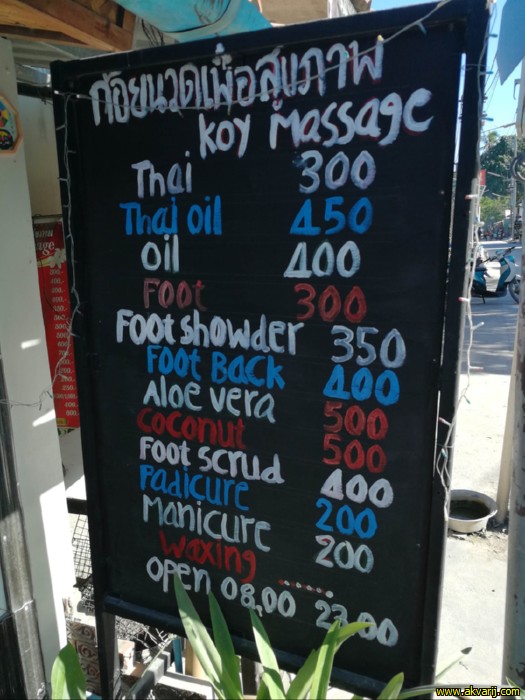 ก้อยนวดเพื่อสุขภาพ
Koy Massage
Thai 300
Thai oil 450
oil 400
Foot 300
Foot showder 350
Foot Back 400
Aloe vera 500
Coconut 500
Foot scrud 400
Padicure 200
Manicure 200
Waxing ......
open 08,00 23.00
www.akvarij.com